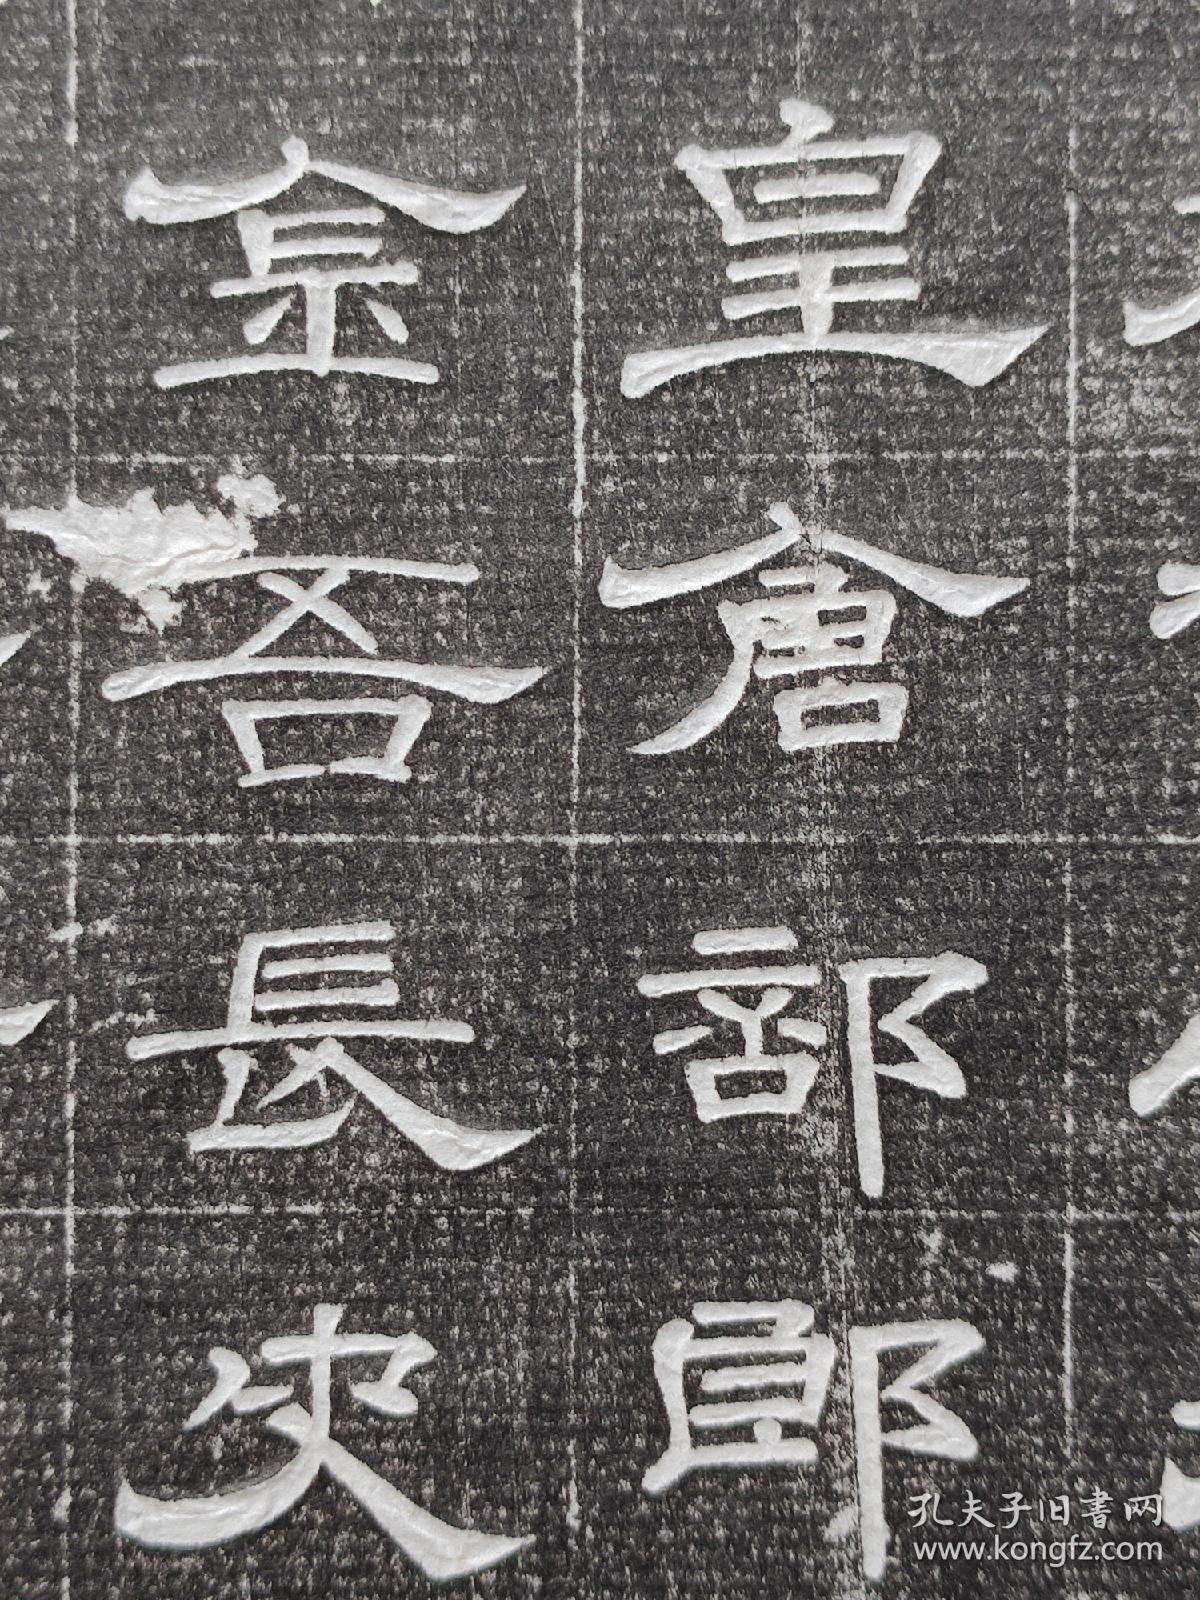 皇倉部郎
金吾長史
孔夫子旧書网
www.kongfz.com